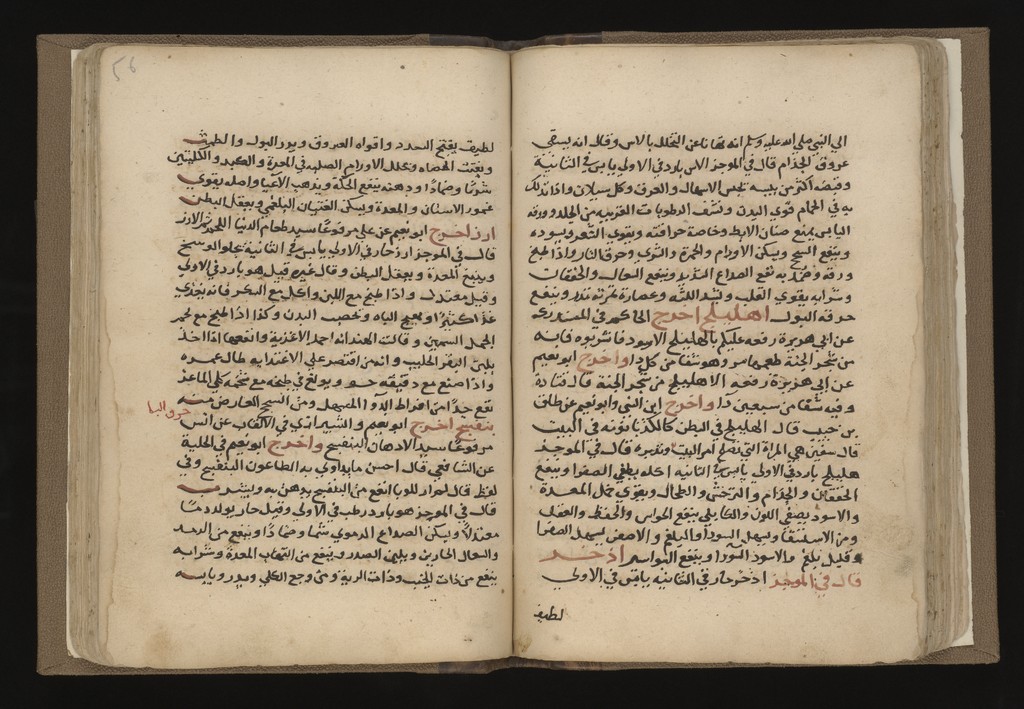 الي النبي صلي الله عليه وسلم انه نهانا عن التخلل بالاس وقال انه يسقي
عروق الجذام قال في الموجز الاس بارد في الاولي يابس في الثانية
وقبضه اكثر من يبسه يحبس الاسهال والعرق وكل سيلان واذا تدلك
به في الحمام قوي البدن ونشف الرطوبات الغريبه من الجلد وورقه
اليابس يمنع صنان الابط وخاصة حراقته ويقوي الشعر ويسوده
وينفع السحج ويسكن الاورام والحمرة والشري وحرق النار واذا طبخ
ورقه وضمد به نفع الصداع الشديد وينفع السعال والخفقان
وشرابه يقوي القلب ويشد اللثه وعصارة ثمرته تدر وينفع
حرقه البول اهليلج اخرج الحاكم في المستدرك
عن ابي هريرة رفعه عليكم بالهليلج الاسود فاشربوه فانه
من شجر الجنة طعمه مر وهو شفا من كل دا واخرج ابو نعيم
عن ابي هريرة رفعه الاهليلج من شجر الجنة قال قتادة
وفيه شفا من سبعين دا واخرج ابن السني وابو نعيم عن طلق
بن حبيب قال الهليلج في البطن كالكدبانونه في البيت
قال سفين هي المراة التي تصلح امر البيت وتدبره قال في الموجز
هليلج بارد في الاولي يابس في الثانيه اكله يطفي الصفرا وينفع
الخفقان والجذام و التوحش والطحال ويقوي خمل المعدة
والاسود يصفي اللون والكابلي ينفع الحواس والحفظ والعقل
ومن الاستسقا ويسهل السودا والبلغم و الاصفر يسهل الصفرا
وقليل بلغم والاسود السودا وينفع البواسر اذخر
قال في الموجز اذخر حار في الثانيه يابس في الاولي
لطيف
56
لطيف يفتح السدد وافواه العروق ويدر البول والطمث
ويفتت الحصاه ويحلل الاورام الصلبه في المعدة والكبد والكليتين
شربا وضمادا ودهنه ينفع الحكه ويذهب الاعيا واصله يقوي
عمور الاسنان والمعدة ويسكن الغثيان البلغمي ويعقل البطن
ارز اخرج ابو نعيم عن علي مرفوعا سيد طعام الدنيا اللحم ثم الارز
قال في الموجز ارز حار في الاولي يابس في الثانية يجلو الوسخ
ويدبغ المعدة ويعقل البطن وقال غيره قيل هو بارد في الاولي
وقيل معتدل واذا طبخ مع اللبن واكل مع السكر فانه يغذي
غذا كثيرا ويهيج الباه ويخصب البدن وكذا اذا طبخ مع لحم
الحمل السمين وقالت الهند انه احمد الاغذية وانفعها اذا اخذ
بلبن البقر الحليب وانه من اقتصر علي الاغتدا به طال عمره
واذا صنع مع دقيقه حسو وبولغ في طبخه مع شحم كلي الماعز
نفع جدا من افراط الدوا المسهل ومن السحج العارض منه
حرف البا
بنفسج اخرج ابو نعيم والشيرازي في الالقاب عن انس
مرفوعا سيد الادهان البنفسج واخرج ابو نعيم في الحلية
عن الشافعي قال احسن ما يداوي به الطاعون البنفسج وفي
لفظ قال لم ار للوبا انفع من البنفسج يدهن به ويشرب
قال في الموجز هو بارد رطب في الاولي وقيل حار يولد دما
معتدلا ويسكن الصداع الدموي شما وضمادا وينفع من الرمد
والسعال الحارين ويلين الصدر وينفع من التهاب المعدة وشرابه
ينفع من ذات الجنب وذات الرية ومن وجع الكلي ويدر ويابسه